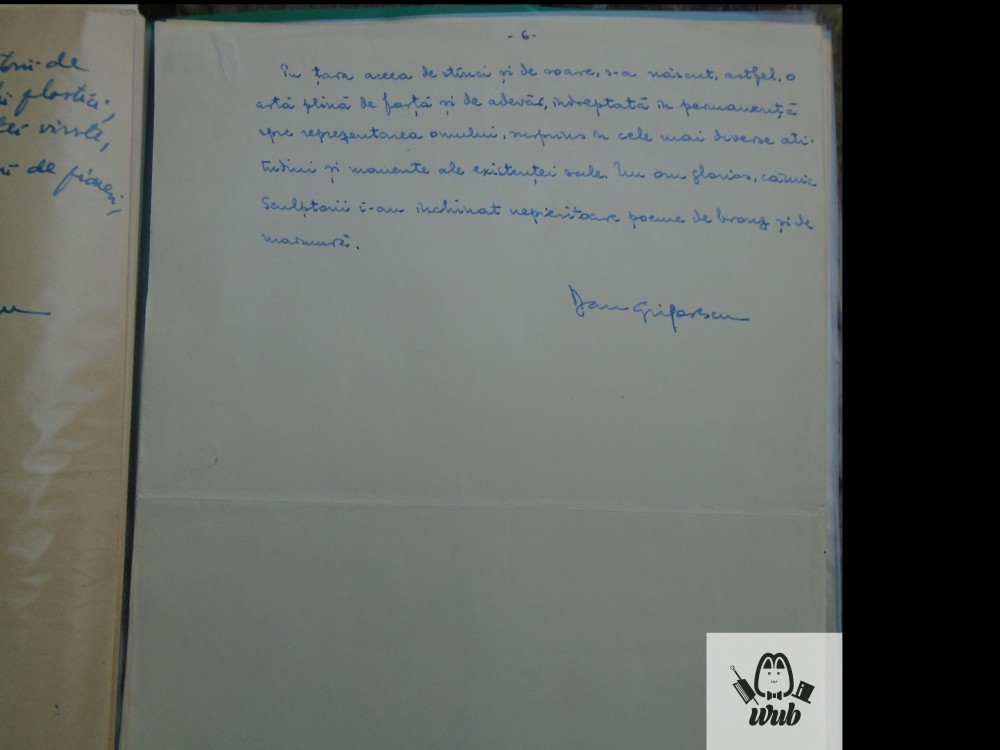 torii de
ii plastici,
tei virste,
ii de fineri,
- 6 -
În țara aceea de stînci și de soare, s-a născut, astfel, o
artă plină de forță și de adevăr, îndreptată în permanență
spre reprezentarea omului, surprins în cele mai diverse ati-
tudini și momente ale existenței sale. Un om glorios, căruia
Sculptorii i-au închinat nepieritoare poeme de bronz și de
marmură.
Dan Grigorescu
wub